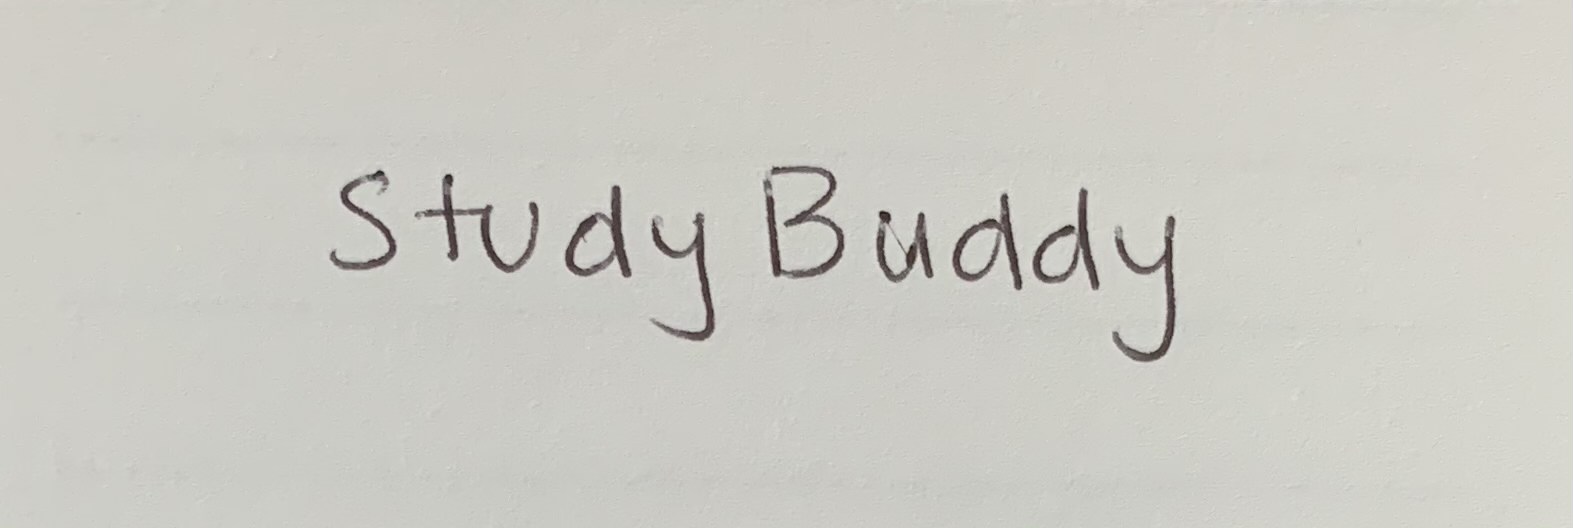 Study Buddy